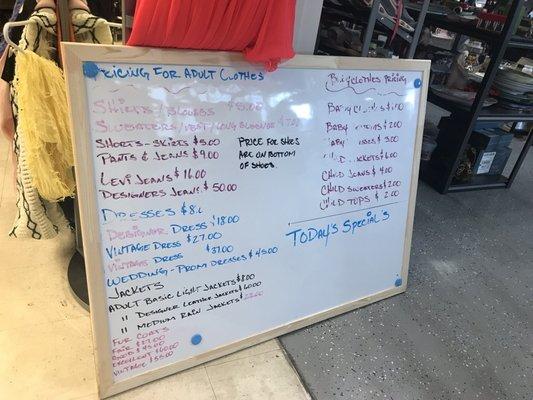 Pricing For Adult Clothes
Shirts/Blouses $5.00
Sweaters/Vest/Long Sleeve
Shorts-Skirts $5.00
Pants & Jeans $9.00
Levi Jeans $16.00
Designers Jeans $50.00
Price for shoes
are on bottom
of shoes.
Dresses $8.
Designer Dress $18.00
Vintage Dress $27.00
Vintage Dress $37.00
Wedding-Prom Dresses $45.00
Jackets
Adult Basic Light Jackets $8.00
" Designer Leather Jackets $60.00
" Medium Rain Jackets
Fur Coats
Fair $27.00
Good $45.00
Excellent $60.00
Vintage $55.00
Clothes Pricing
Baby
Baby $2.00
Baby $3.00
Jackets $6.00
Child Jeans $4.00
Child Sweaters $2.00
Child Tops $2.00
Today's Special's